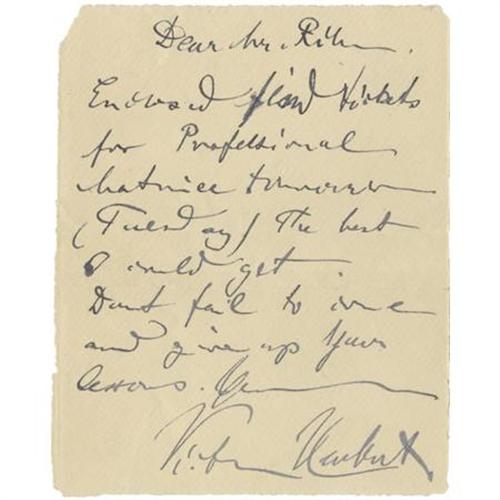 Dear Mr.
Enclosed find tickets
for Professional
Matinee tomorrow
(Tuesday) The best
I could get.
Dont fail to come
and give up your
lessons.
Victor Herbert